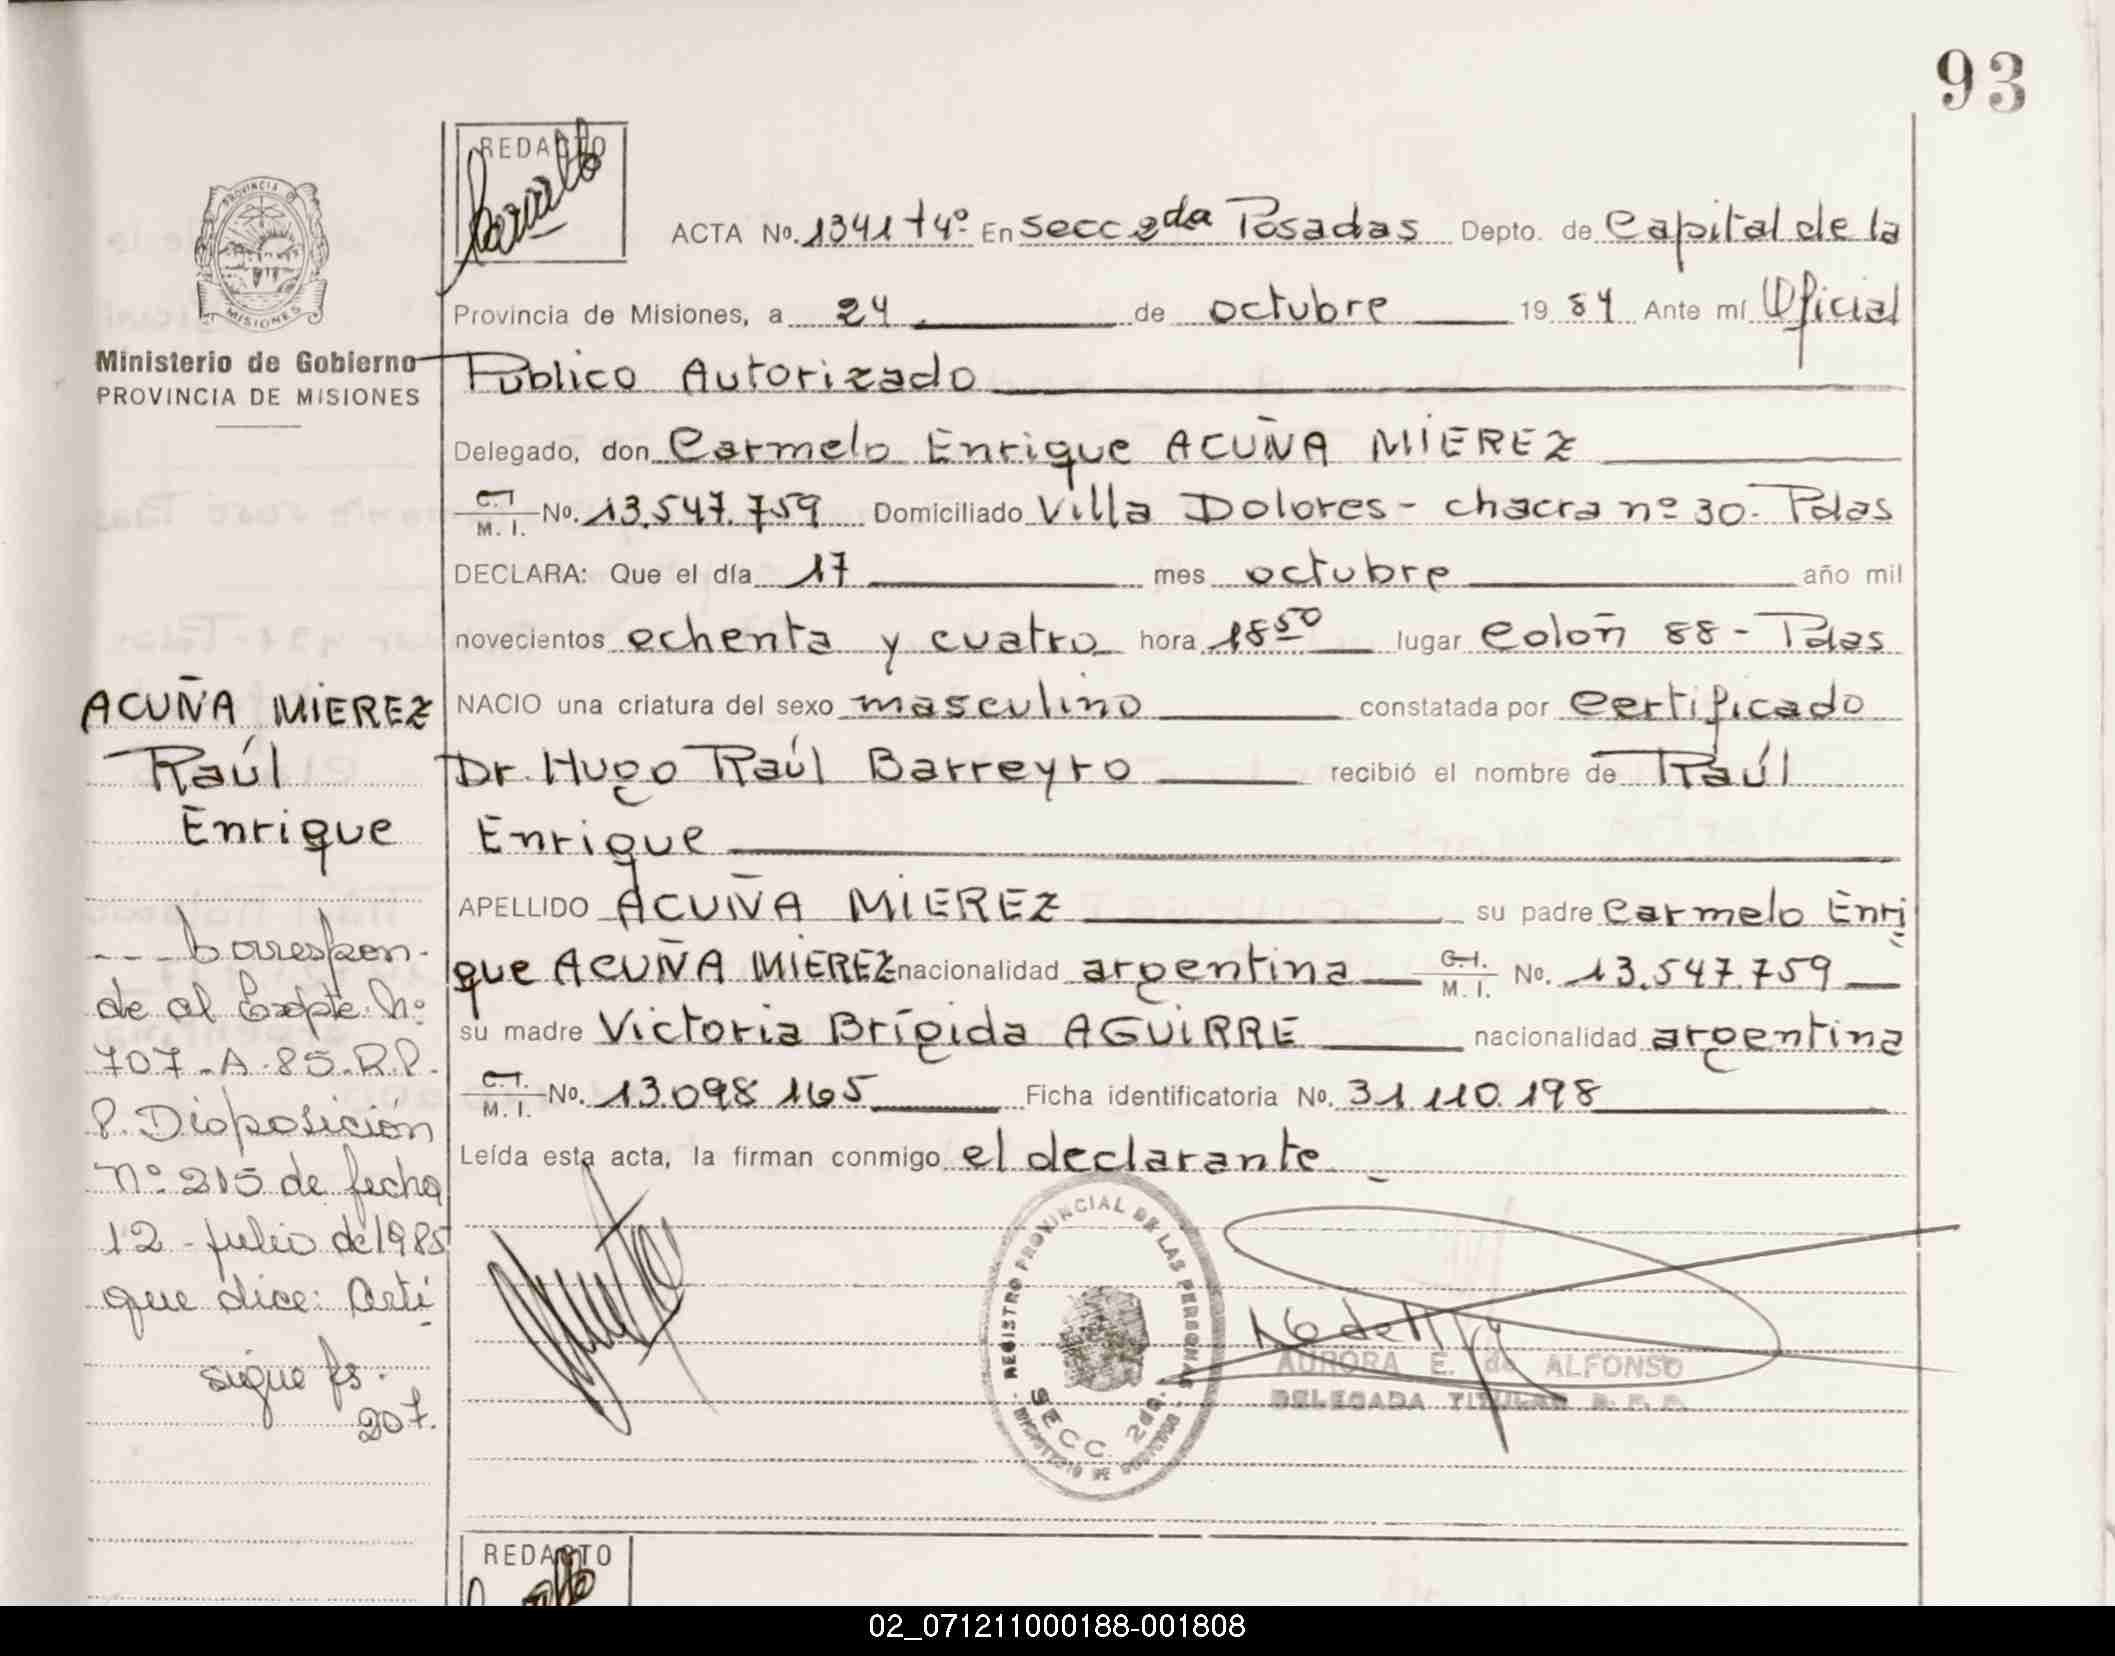 93
REDACTO
ACTA No. 1341 T4º En Secc 2da Posadas Depto. de Capital de la
Provincia de Misiones, a 24 de octubre 19 84 Ante mí Oficial
Público Autorizado
Delegado, don Carmelo Enrique ACUÑA MIEREZ
C.I. M. I. No. 13.547.759 Domiciliado Villa Dolores - chacra nº 30. Pdas
DECLARA: Que el día 17 mes octubre año mil
novecientos ochenta y cuatro hora 18 50 lugar Colón 88 - Pdas
NACIO una criatura del sexo masculino constatada por Certificado
Dr. Hugo Raúl Barreyro recibió el nombre de Raúl
Enrique
APELLIDO ACUÑA MIEREZ su padre Carmelo Enri
que ACUÑA MIEREZ nacionalidad argentina C.I. M. I. No. 13.547.759
su madre Victoria Brígida AGUIRRE nacionalidad argentina
C.I. M. I. No. 13.098.165 Ficha identificatoria No. 31.110.198
Leída esta acta, la firman conmigo el declarante
PROVINCIA
MISIONES
Ministerio de Gobierno
PROVINCIA DE MISIONES
ACUÑA MIEREZ
Raúl
Enrique
--- Correspon-
de al Expte. Nº
707-A-85-R.P.
P. Disposición
nº 215 de fecha
12 - julio de 1985
que dice: Artí
sigue fs.
207.
REGISTRO PROVINCIAL DE LAS PERSONAS
SECC. 2da.
AURORA E. de ALFONSO
DELEGADA TITULAR R. P. P.
REDACTO
02_071211000188-001808